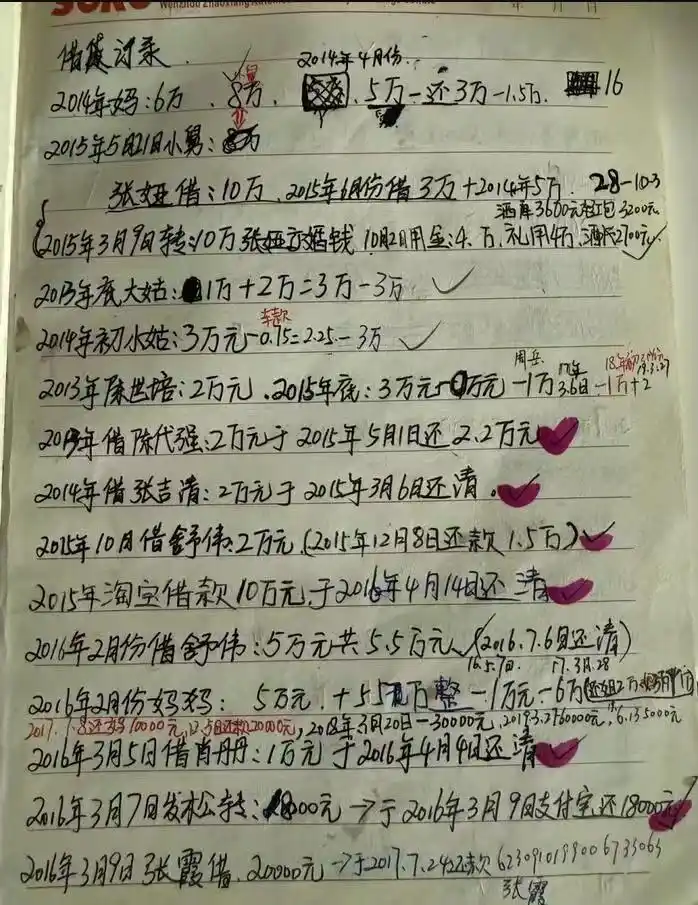 借贷记录
2014年4月份
2014年妈:6万、8万、5万-还3万-1.5万 16
小舅
2015年5月21日小舅:8万
张娅借:10万、2015年6月份借3万+2014年5万 28-10-3
酒席3600元红包3200元
2015年3月9日转:10万张娅订婚钱 10月2日用金:4.万、礼用4万、酒2700元 ✓
2013年底大姑:1万+2万=3万-3万 ✓
车款
2014年初小姑:3万元-0.75=2.25-3万 ✓
周岳 17年 18年
2013年陈世培:2万元、2015年底:3万元-1万元-1万 3.6日-1万+2
2013年借陈代强:2万元于2015年5月1日还2.2万元 ✓
2014年借张吉清:2万元于2015年3月6日还清。✓
2015年10月借舒伟:2万元(2015年12月8日还款1.5万) ✓
2015年淘宝借款10万元于2016年4月14日还清 ✓
2016年2月份借舒伟:5万元共5.5万元 ✓(2016.7.6日还清)
16.5.7日. 17.3月.28
2016年2月份妈妈: 5万元.+5.5万整-1万元-6万(还姐2万
2017.1.8还妈10000元,日还款20000元,2018年3月20日-30000元,2019.3.2 60000元,6.13 5000元
2016年3月5日借肖丹丹:1万元于2016年4月4日还清 ✓
2016年3月7日发松转:18000元→于2016年3月9日支付宝还18000元 ✓
2016年3月9日张霞借.20000元→于2017.7.24还款 6230910199006735063
张霞